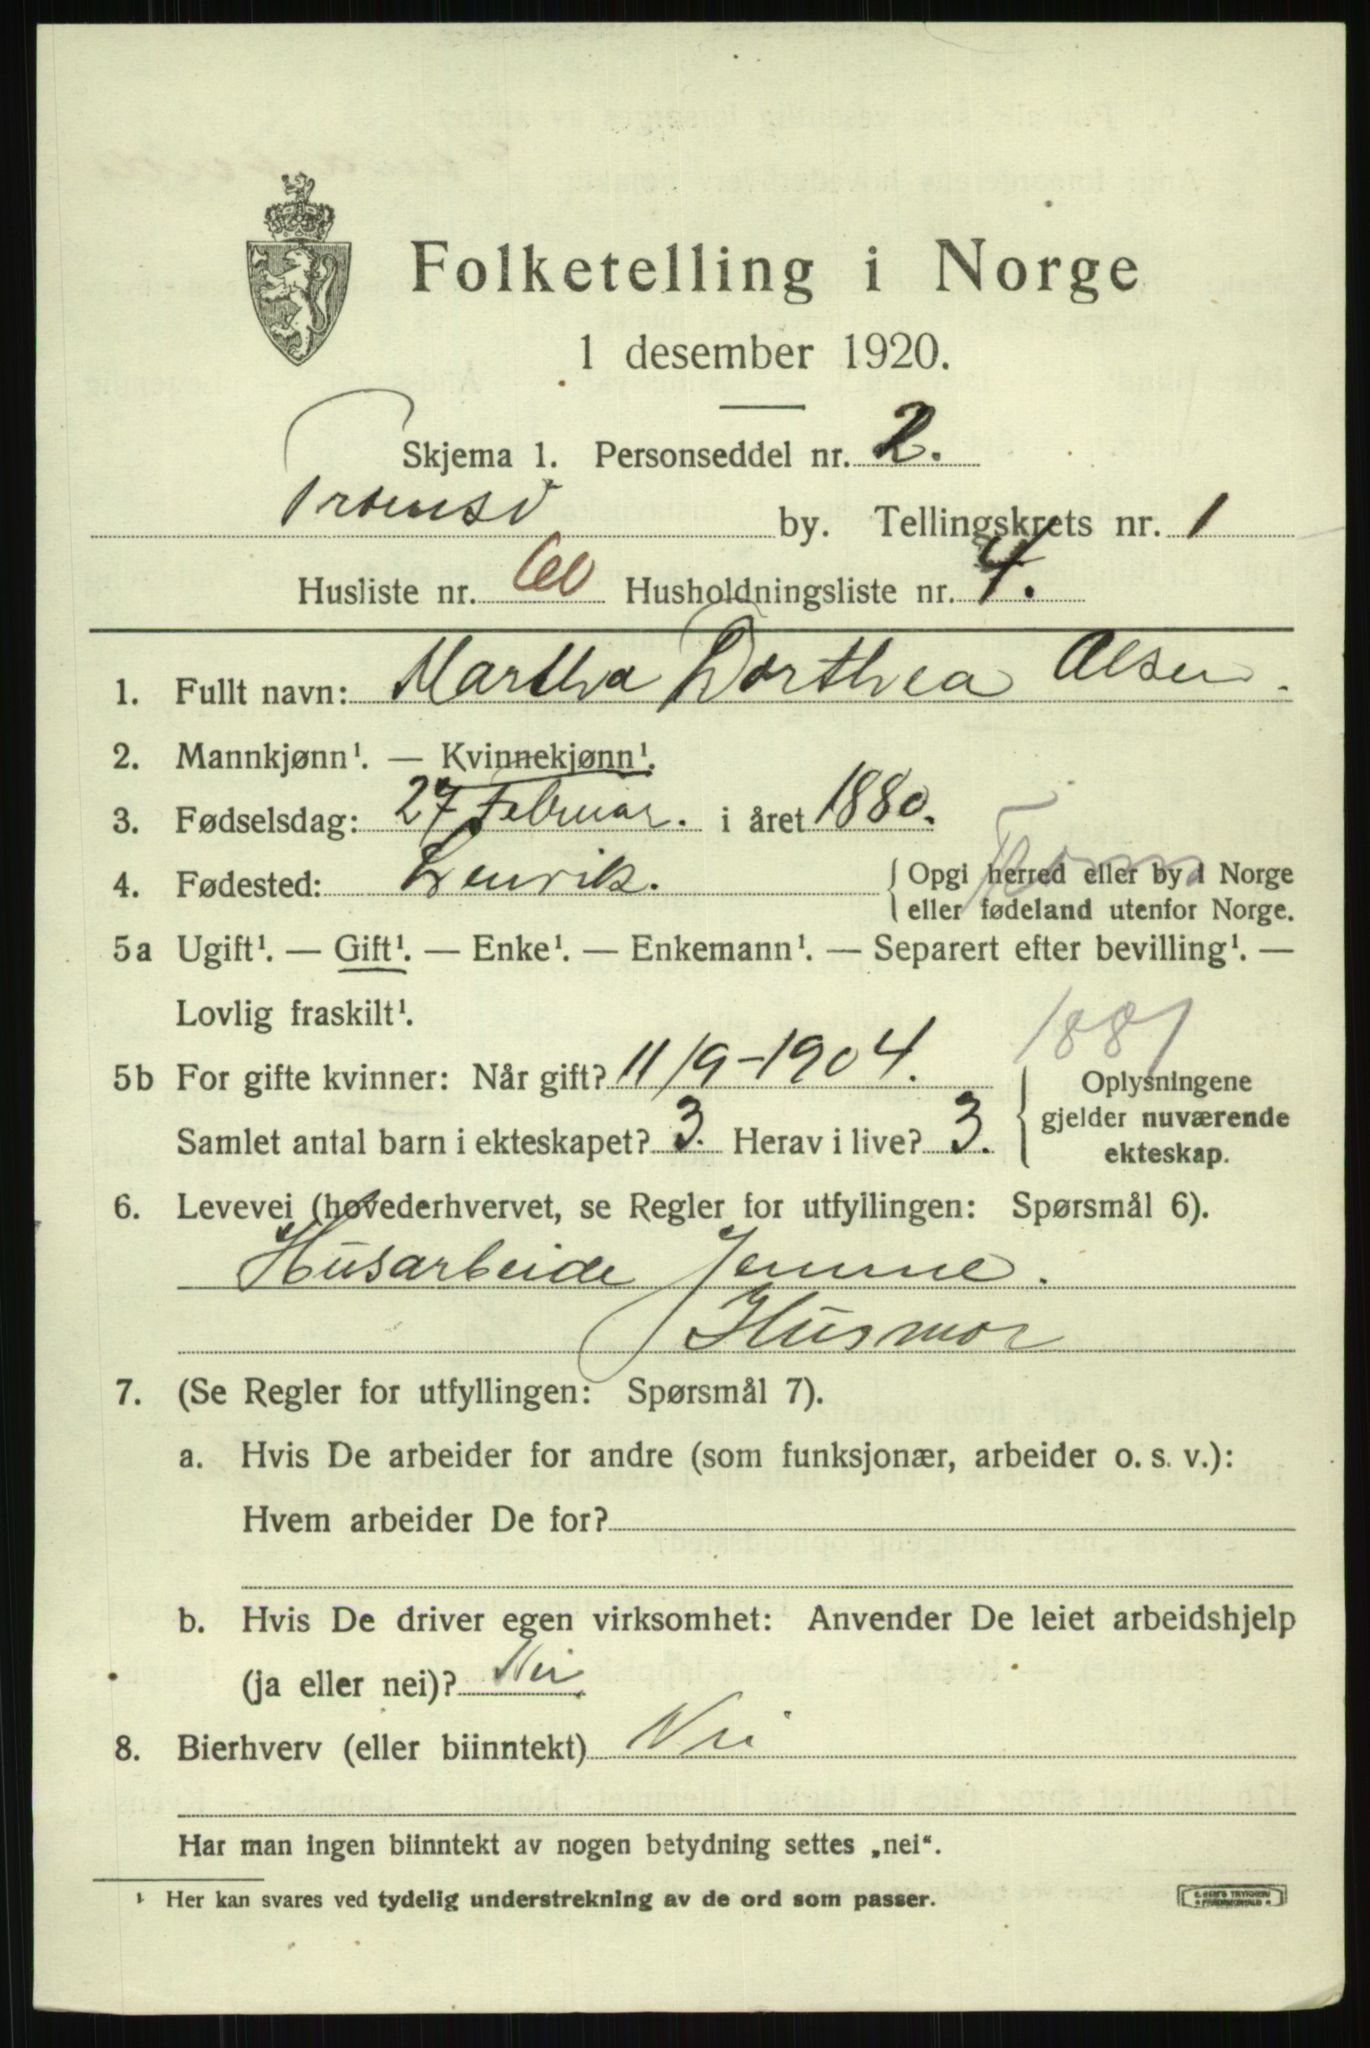 Folketelling i Norge
1 desember 1920.
Skjema 1. Personseddel nr. 2.
Tromsö by. Tellingskrets nr. 1
Husliste nr. 60 Husholdningsliste nr. 4.
1. Fullt navn: Martha Dorthea Olsen.
2. Mannkjønn¹. — Kvinnekjønn¹.
3. Fødselsdag: 27 Februar. i året 1880.
4. Fødested: Lenvik. { Opgi herred eller by i Norge
eller fødeland utenfor Norge.
Troms
5a Ugift¹. — Gift¹. — Enke¹. — Enkemann¹. — Separert efter bevilling¹. —
Lovlig fraskilt¹.
1881
5b For gifte kvinner: Når gift? 11/9-1904. { Oplysningene
gjelder nuværende
Samlet antal barn i ekteskapet? 3. Herav i live? 3.
ekteskap.
6. Levevei (hovederhvervet, se Regler for utfyllingen: Spørsmål 6).
Husarbeide Jemme.
Husmor
7. (Se Regler for utfyllingen: Spørsmål 7).
a. Hvis De arbeider for andre (som funksjonær, arbeider o. s. v.):
Hvem arbeider De for?
b. Hvis De driver egen virksomhet: Anvender De leiet arbeidshjelp
(ja eller nei)? Nei
8. Bierhverv (eller biinntekt) Nei
Har man ingen biinntekt av nogen betydning settes „nei“.
¹ Her kan svares ved tydelig understrekning av de ord som passer.